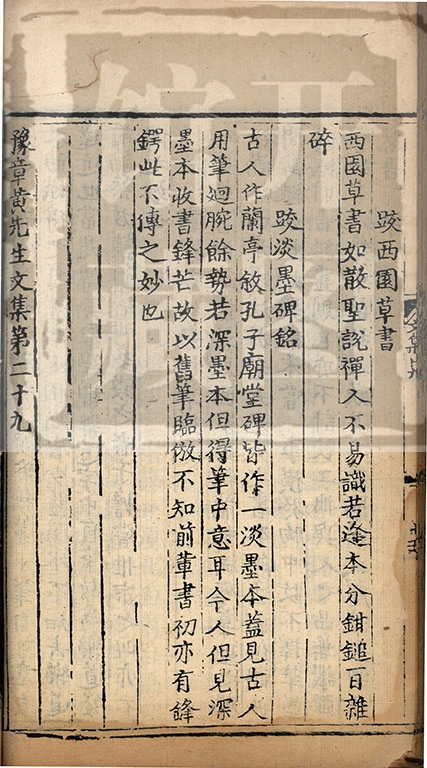 跋西園草書
西園草書如散聖說禪人不易識若逢本分鉗鎚百雜
碎
跋淡墨碑銘
古人作蘭亭敘孔子廟堂碑皆作一淡墨本蓋見古人
用筆廻腕餘勢若深墨本但得筆中意耳今人但見深
墨本收書鋒芒故以舊筆臨倣不知前輩書初亦有鋒
鍔此不傳之妙也
豫章黃先生文集第二十九